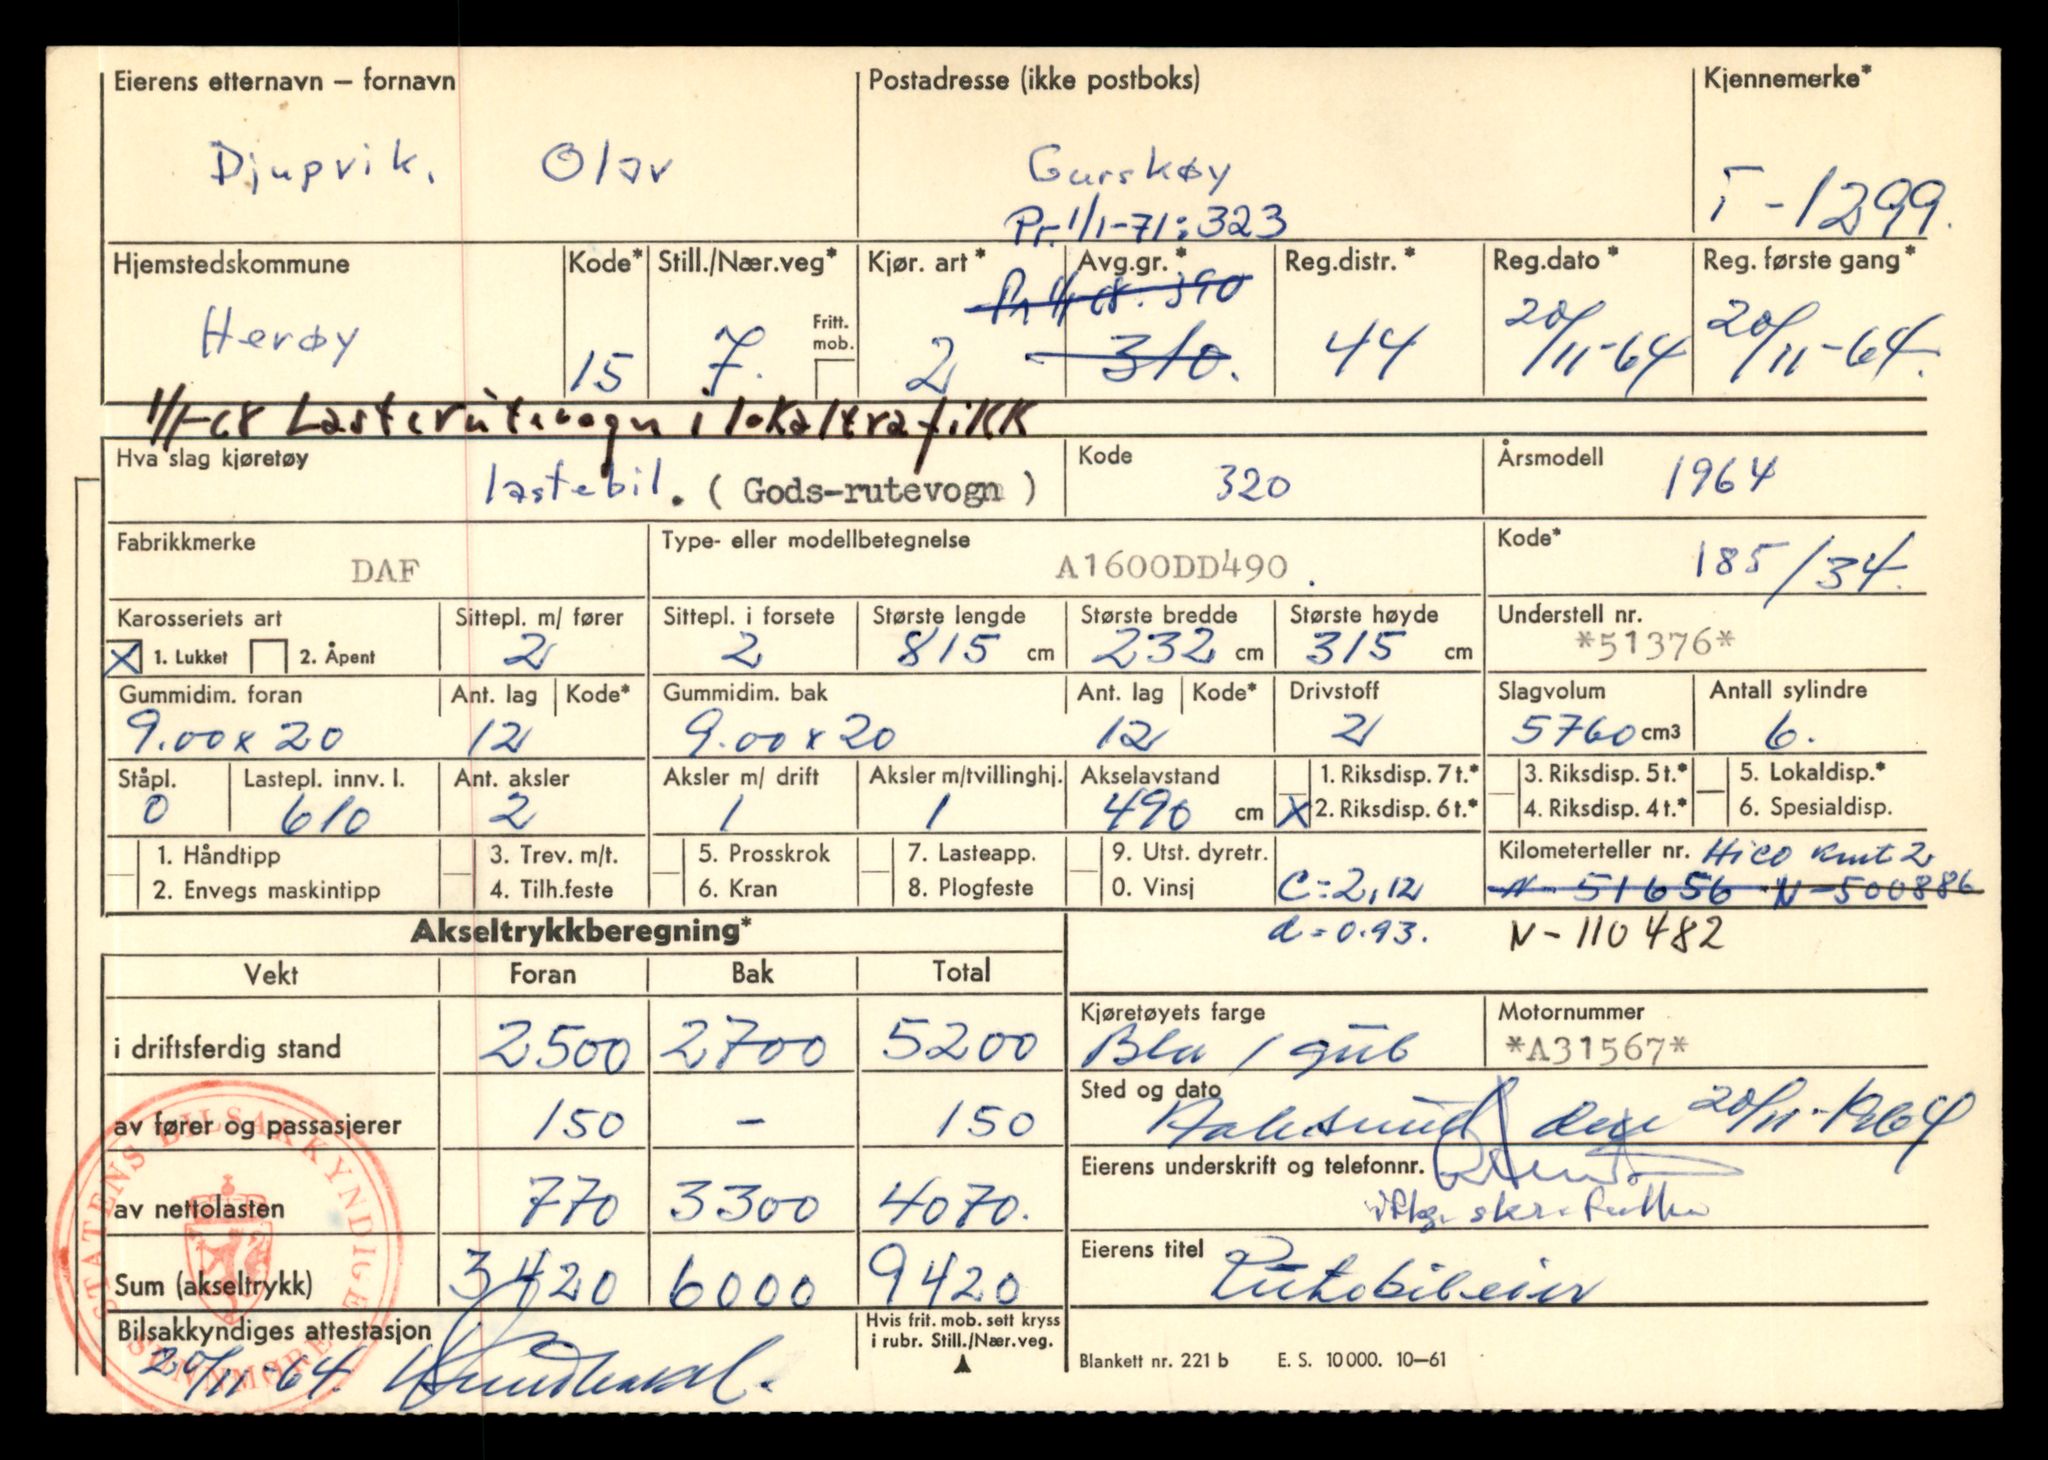 Eierens etternavn – fornavn Postadresse (ikke postboks) Kjennemerke*
Djupvik. Olav Gurskøy T-1299.
Pr. 1/1-71: 323
Hjemstedskommune Kode* Still./Nær.veg* Kjør. art* Avg.gr.* Reg.distr.* Reg.dato* Reg. første gang*
Pr 1/1 68. 390
Fritt. mob.
Herøy 15 7. 2 310. 44 20/11-64 20/11-64.
1/1-68 Lasterutevogn i lokaltrafikk
Hva slag kjøretøy Kode Årsmodell
lastebil. (Gods-rutevogn) 320 1964
Fabrikkmerke Type- eller modellbetegnelse Kode*
DAF A1600DD490. 185/34.
Karosseriets art Sittepl. m/ fører Sittepl. i forsete Største lengde Største bredde Største høyde Understell nr.
X 1. Lukket 2. Åpent 2 2 815 cm 232 cm 315 cm *51376*
Gummidim. foran Ant. lag Kode* Gummidim. bak Ant. lag Kode* Drivstoff Slagvolum Antall sylindre
9.00 x 20 12 9.00 x 20 12 2 5760 cm3 6.
Ståpl. Lastepl. innv. l. Ant. aksler Aksler m/ drift Aksler m/tvillinghj. Akselavstand 1. Riksdisp. 7 t.* 3. Riksdisp. 5 t.* 5. Lokaldisp.*
0 610 2 1 1 490 cm X 2. Riksdisp. 6 t.* 4. Riksdisp. 4 t.* 6. Spesialdisp.
1. Håndtipp 3. Trev. m/t. 5. Prosskrok 7. Lasteapp. 9. Utst. dyretr. Kilometerteller nr. Hico Kmt 2
2. Envegs maskintipp 4. Tilh.feste 6. Kran 8. Plogfeste 0. Vinsj C=2,12 N-51656 N-500886
Akseltrykkberegning* d=0.93. N-110482
Vekt Foran Bak Total
Kjøretøyets farge Motornummer
i driftsferdig stand 2500 2700 5200 Blå / gul *A31567*
Sted og dato
av fører og passasjerer 150 - 150 Aalesund den 20/11-1964
Eierens underskrift og telefonnr.
av nettolasten 770 3300 4070.
Eierens titel
Sum (akseltrykk) 3420 6000 9420 Rutebileier
Bilsakkyndiges attestasjon Hvis frit. mob. sett kryss
i rubr. Still./Nær.veg.
20/11-64.
Blankett nr. 221 b E. S. 10 000. 10–61
STATENS BILSAKKYNDIGE
SUNNMØRE